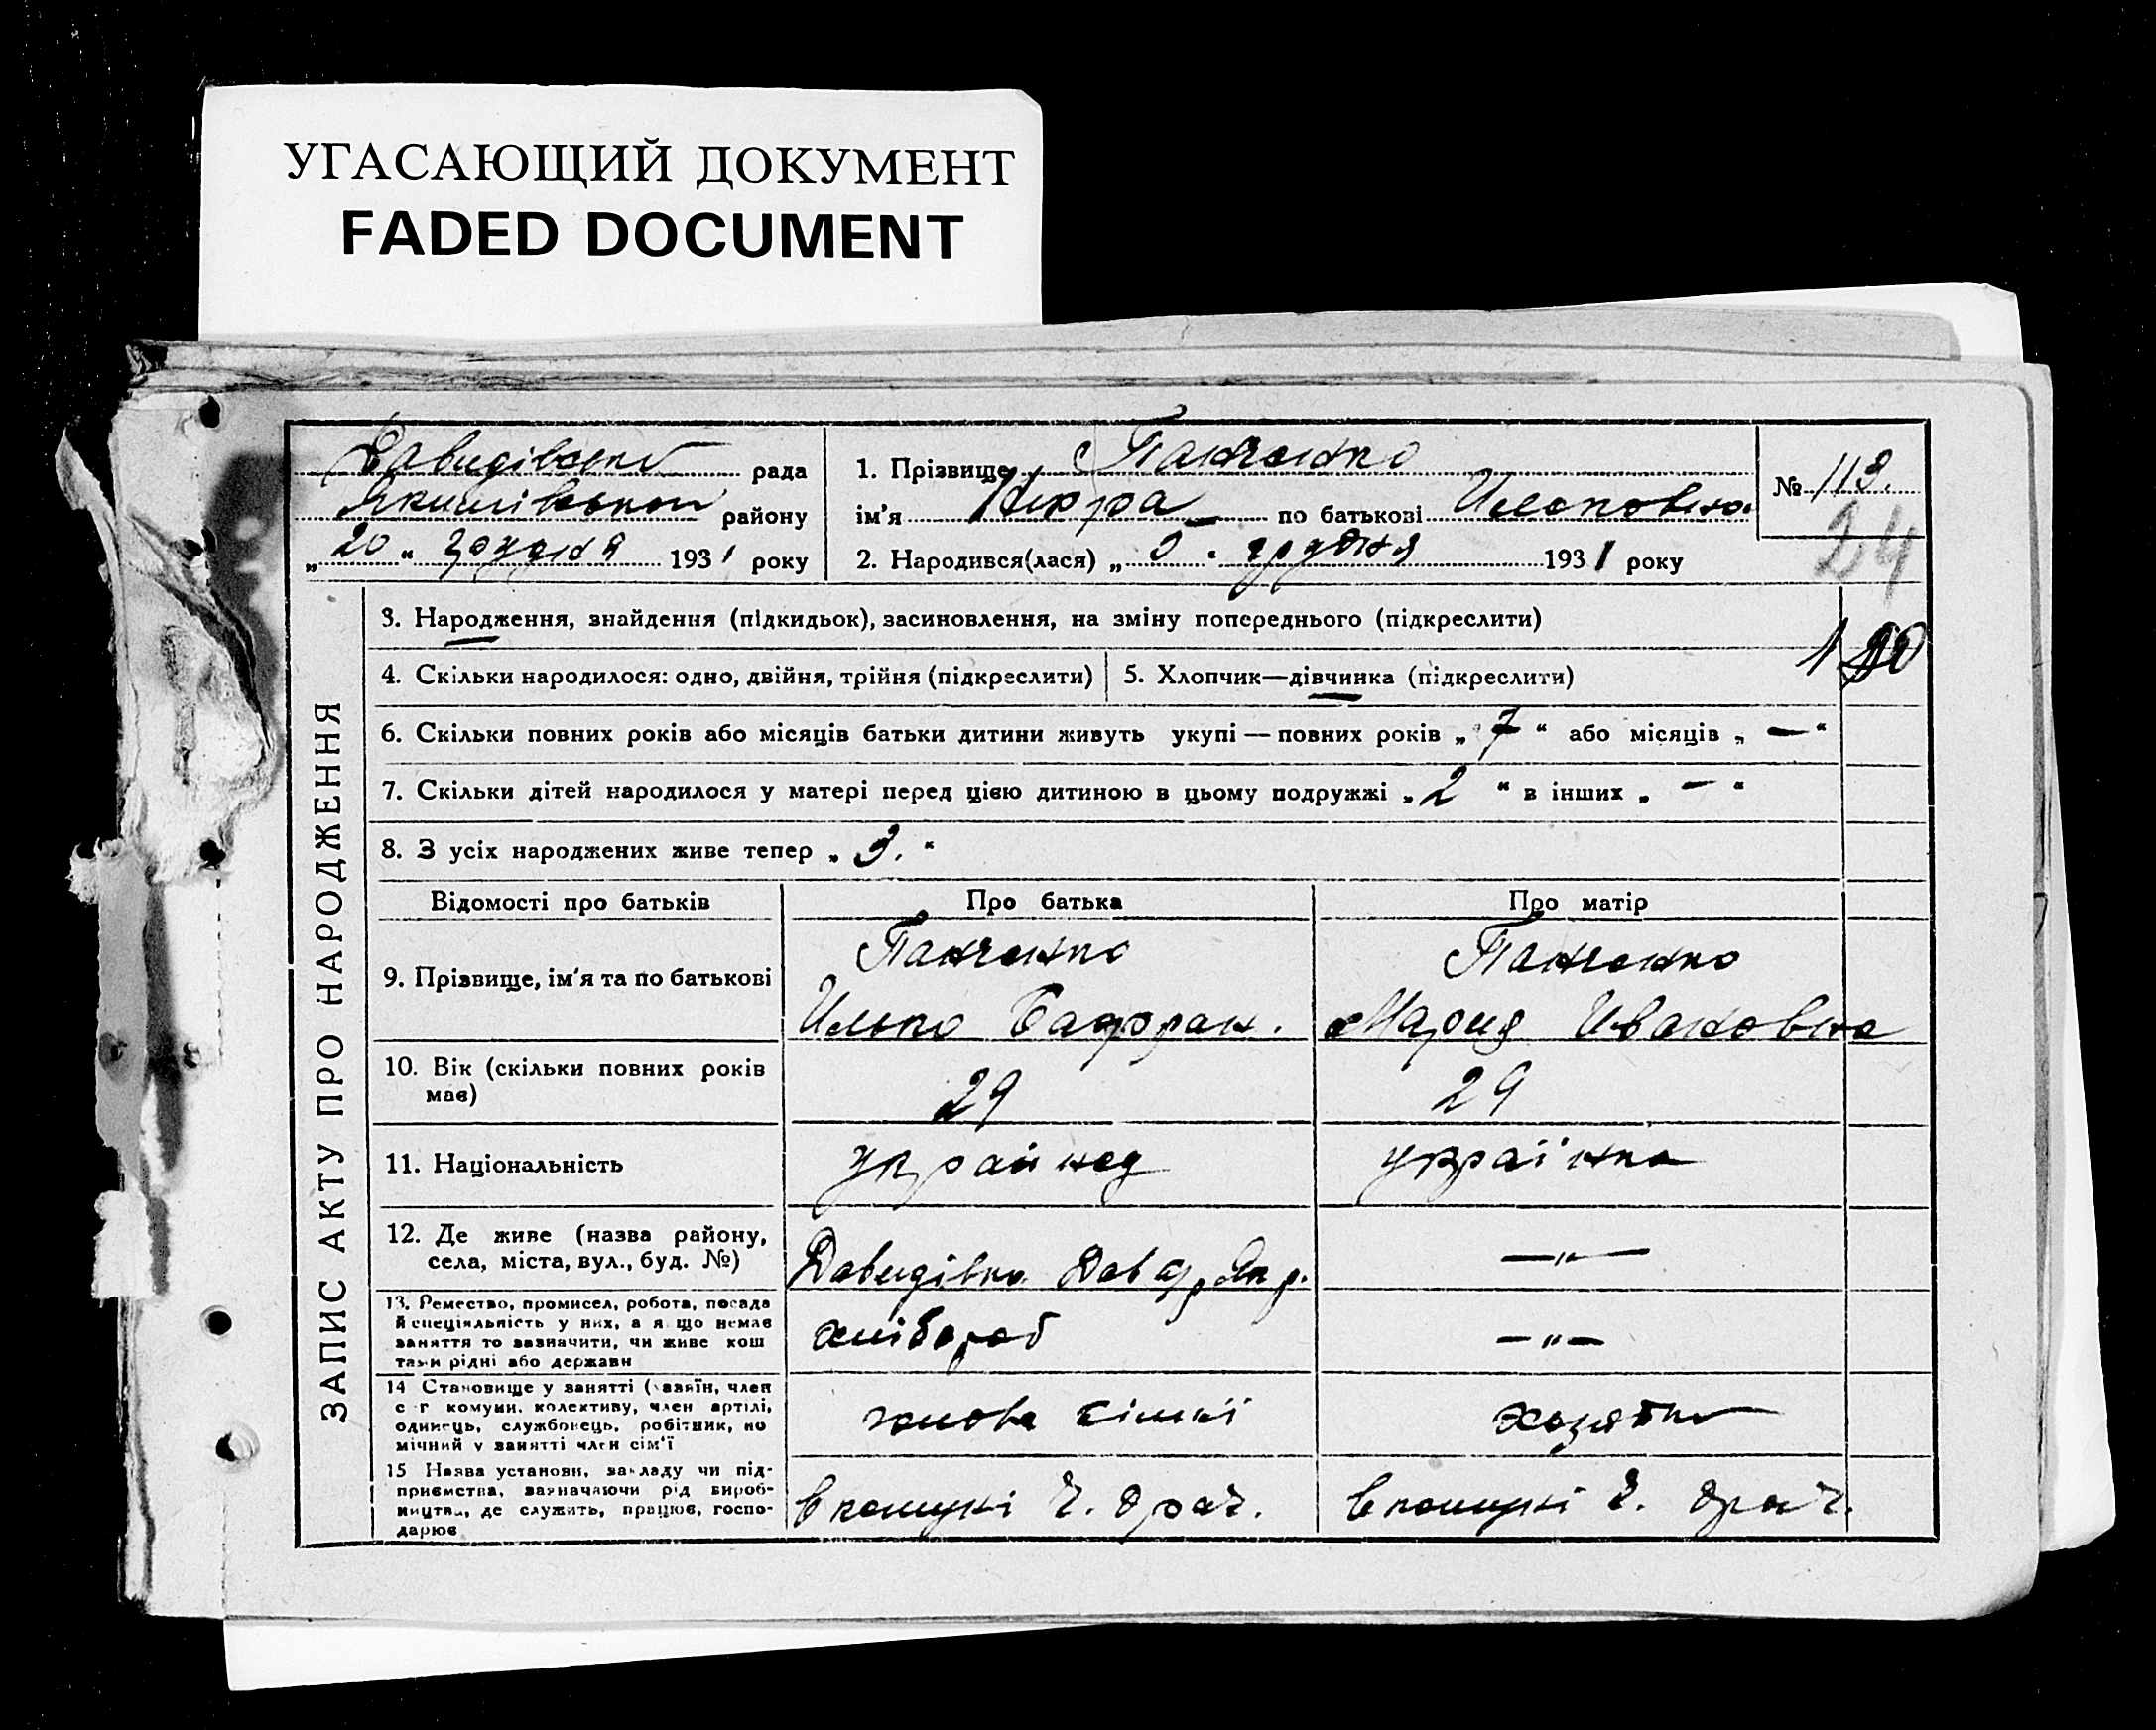 УГАСАЮЩИЙ ДОКУМЕНТ
FADED DOCUMENT
Давидівської рада
Якимівського району
„20“ грудня 1931 року
1. Прізвище Панченко
ім'я по батькові
2. Народився(лася) „5“ грудня 1931 року
№ 113.
24
ЗАПИС АКТУ ПРО НАРОДЖЕННЯ
3. Народження, знайдення (підкидьок), засиновлення, на зміну попереднього (підкреслити)
4. Скільки народилося: одно, двійня, трійня (підкреслити)
5. Хлопчик—дівчинка (підкреслити)
6. Скільки повних років або місяців батьки дитини живуть укупі — повних років „7“ або місяців „—“
7. Скільки дітей народилося у матері перед цією дитиною в цьому подружжі „2“ в інших „—“
8. З усіх народжених живе тепер „3.“
Відомості про батьків
Про батька
Про матір
9. Прізвище, ім'я та по батькові
Панченко
Илько
Панченко
Мария Ивановна
10. Вік (скільки повних років
має)
29
29
11. Національність
українец
українка
12. Де живе (назва району,
села, міста, вул., буд. №)
Давидівка Дав с/р Як р.
—„—
13. Ремество, промисел, робота, посада
й спеціяльність у них, а якщо немає
заняття то зазначити, чи живе кош
тами рідні або держави
хлібороб
—„—
14 Становище у занятті (хазяїн, член
с-г комуни, колективу, член артілі,
одинець, службовець, робітник, по
мічний у занятті член сім'ї
голова сімьї
15 Назва установи, закладу чи під-
приємства, зазначаючи рід вироб-
ництва, де служить, працює, госпо-
дарює